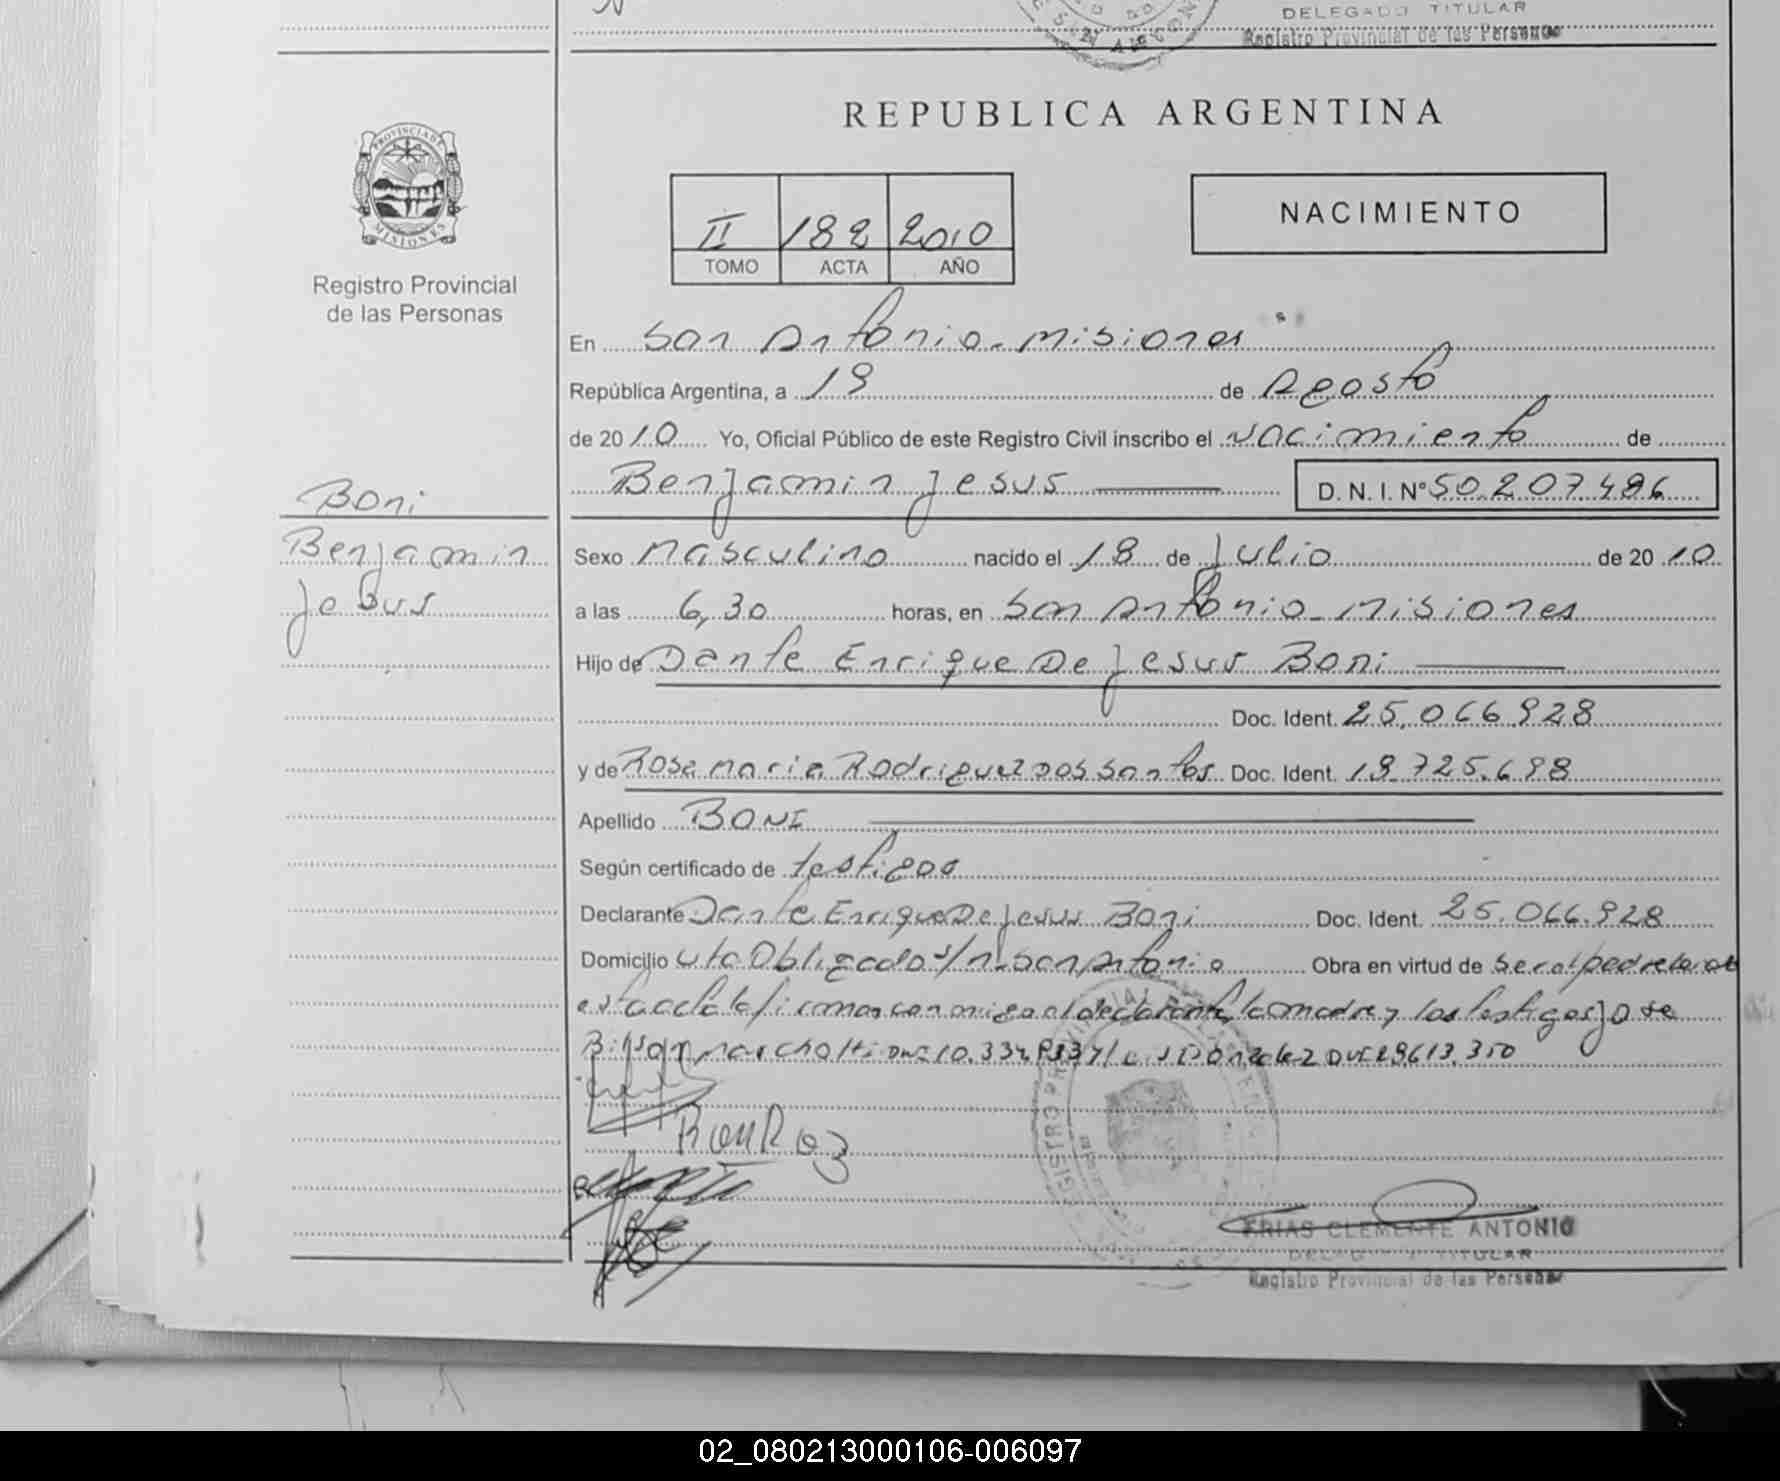 DELEGADO TITULAR
Registro Provincial de las Personas
REPUBLICA ARGENTINA
PROVINCIA DE
MISIONES
Registro Provincial
de las Personas
II 182 2010
TOMO ACTA AÑO
NACIMIENTO
En San Antonio - Misiones
República Argentina, a 19 de Agosto
de 2010 Yo, Oficial Público de este Registro Civil inscribo el nacimiento de
Benjamin Jesus D.N.I. Nº 50.207.496
Boni
Benjamin
Jesus
Sexo Masculino nacido el 18 de Julio de 2010
a las 6,30 horas, en San Antonio - Misiones
Hijo de Dante Enrique De Jesus Boni
Doc. Ident. 25.066.928
y de Rosa Maria Rodriguez Dos Santos Doc. Ident. 18.725.698
Apellido BONI
Según certificado de testigos
Declarante Dante Enrique De Jesus Boni Doc. Ident. 25.066.928
Domicilio Obligado s/n San Antonio Obra en virtud de ser el padre
esta acta firman conmigo el declarante, la madre y los testigos Jose
FRIAS CLEMENTE ANTONIO
DELEGADO TITULAR
Registro Provincial de las Personas
02_080213000106-006097